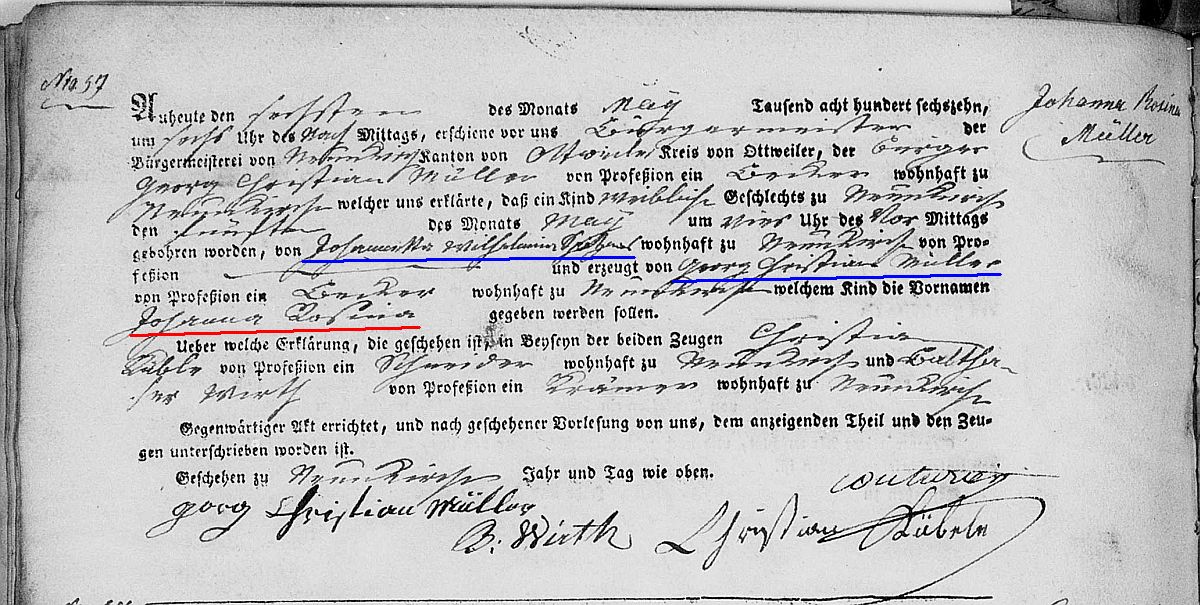 Nro 57
Auheute den sechsten des Monats May Tausend acht hundert sechszehn,
um sechs Uhr des Nach Mittags, erschiene vor uns Bürgermeister der
Bürgermeisterei von Neunkirchen Kanton von Ottweiler Kreis von Ottweiler, der Bürger
Georg Christian Müller von Profeßion ein Becker wohnhaft zu
Neunkirchen welcher uns erklärte, daß ein Kind weiblichen Geschlechts zu Neunkirchen
den fünften des Monats May um vier Uhr des Vor Mittags
gebohren worden, von Johannetta Wilhelmina wohnhaft zu Neunkirchen von Pro-
feßion und erzeugt von Georg Christian Müller
von Profeßion ein Becker wohnhaft zu Neunkirchen welchem Kind die Vornamen
Johanna Rosina gegeben werden sollen.
Ueber welche Erklärung, die geschehen ist, in Beyseyn der beiden Zeugen Christian
Käble von Profeßion ein Schneider wohnhaft zu Neunkirchen und Baltha-
ser Wirth von Profeßion ein Krämer wohnhaft zu Neunkirchen
Gegenwärtiger Akt errichtet, und nach geschehener Vorlesung von uns, dem anzeigenden Theil und den Zeu-
gen unterschrieben worden ist.
Geschehen zu Neunkirchen Jahr und Tag wie oben.
georg Christian Müller
B. Wirth Christian
Johanna Rosina
Müller